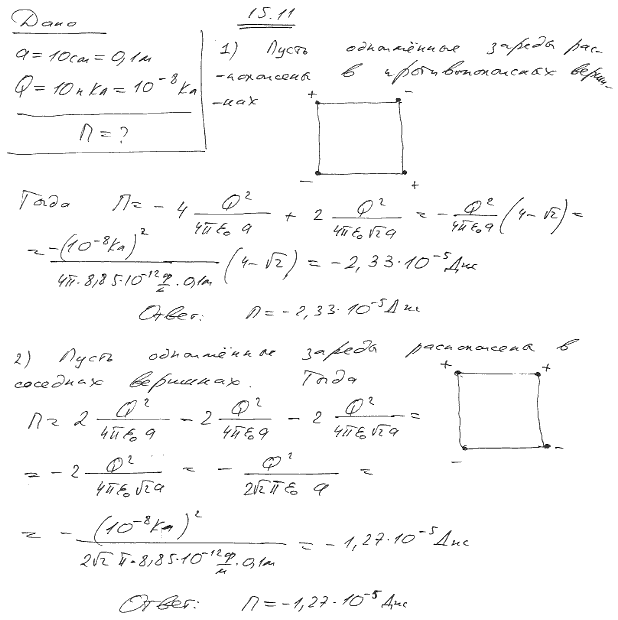 Дано
a = 10см = 0,1м
Q = 10нКл = 10⁻⁸Кл
П = ?
15.11
1) Пусть одноимённые заряды рас-
-положены в противоположных верши-
-нах
+ -
- +
Тогда П = - 4 Q²/(4πε₀ a) + 2 Q²/(4πε₀√2a) = - Q²/(4πε₀a) (4-√2) =
= -(10⁻⁸Кл)²/(4π·8,85·10⁻¹² Ф/м ·0,1м) (4-√2) = -2,33·10⁻⁵Дж
Ответ: П = -2,33·10⁻⁵Дж
2) Пусть одноимённые заряды расположены в
соседних вершинах. Тогда
+ +
- -
П = 2 Q²/(4πε₀ a) - 2 Q²/(4πε₀ a) - 2 Q²/(4πε₀√2a) =
= -2 Q²/(4πε₀√2a) = - Q²/(2√2πε₀ a) =
= - (10⁻⁸Кл)²/(2√2 π·8,85·10⁻¹² Ф/м ·0,1м) = -1,27·10⁻⁵Дж
Ответ: П = -1,27·10⁻⁵Дж